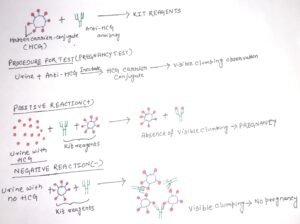 + → KIT REAGENTS
Hapten carrier-conjugate
(HCG)
Anti-HCG
antibody
PROCEDURE FOR TEST (PREGNANCY TEST)
Urine + Anti-HCG Incubate → HCG Carrier Conjugate → Visible clumping observation
POSITIVE REACTION (+)
+ + → +
Urine with
HCG
Kit reagents
Absence of Visible Clumping → PREGNANCY
NEGATIVE REACTION (-)
Urine with
no HCG
+ + →
Kit reagents
Visible Clumping → No pregnancy